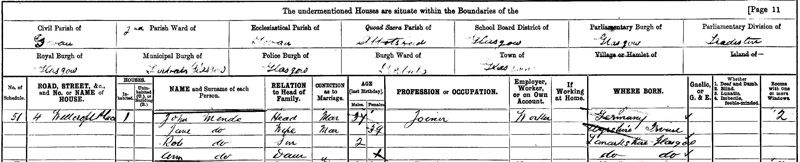 The undermentioned Houses are situate within the Boundaries of the
[Page 11
Civil Parish of
Govan
Parish Ward of
Ecclesiastical Parish of
Govan
Quoad Sacra Parish of
School Board District of
Glasgow
Parliamentary Burgh of
Glasgow
Parliamentary Division of
Tradeston
Royal Burgh of
Glasgow
Municipal Burgh of
Police Burgh of
Glasgow
Burgh Ward of
Town of
Glasgow
Village or Hamlet of
Island of
No. of Schedule.
ROAD, STREET, &c., and No. or NAME of HOUSE.
HOUSES.
Inhabited.
NAME and Surname of each Person.
RELATION to Head of Family.
CONDITION as to Marriage.
AGE (last Birthday).
Males.
Females.
PROFESSION or OCCUPATION.
Employer, Worker, or on Own Account.
If Working at Home.
WHERE BORN.
Gaelic, or G. & E.
Whether
1. Deaf and Dumb
2. Blind
3. Lunatic
4. Imbecile, feeble-minded.
Rooms with one or more Windows.
51 4 Wellcroft Place 1 John Mende Head Mar 34 Joiner Worker Germany 2
Jane do Wife Mar 34 Ayrshire Irvine
Rob do Son 2 Lanarkshire Glasgow
Ann do Daur do do